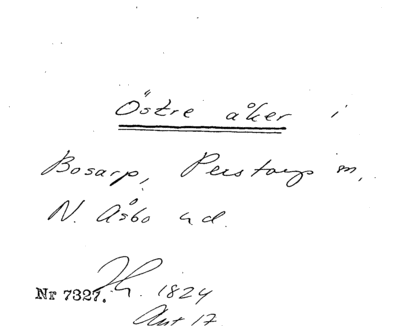 Östre åker i
Bosarp, Perstorps sn,
N. Åsbo hd.
Nr 7327. Th. 1824
Akt 17